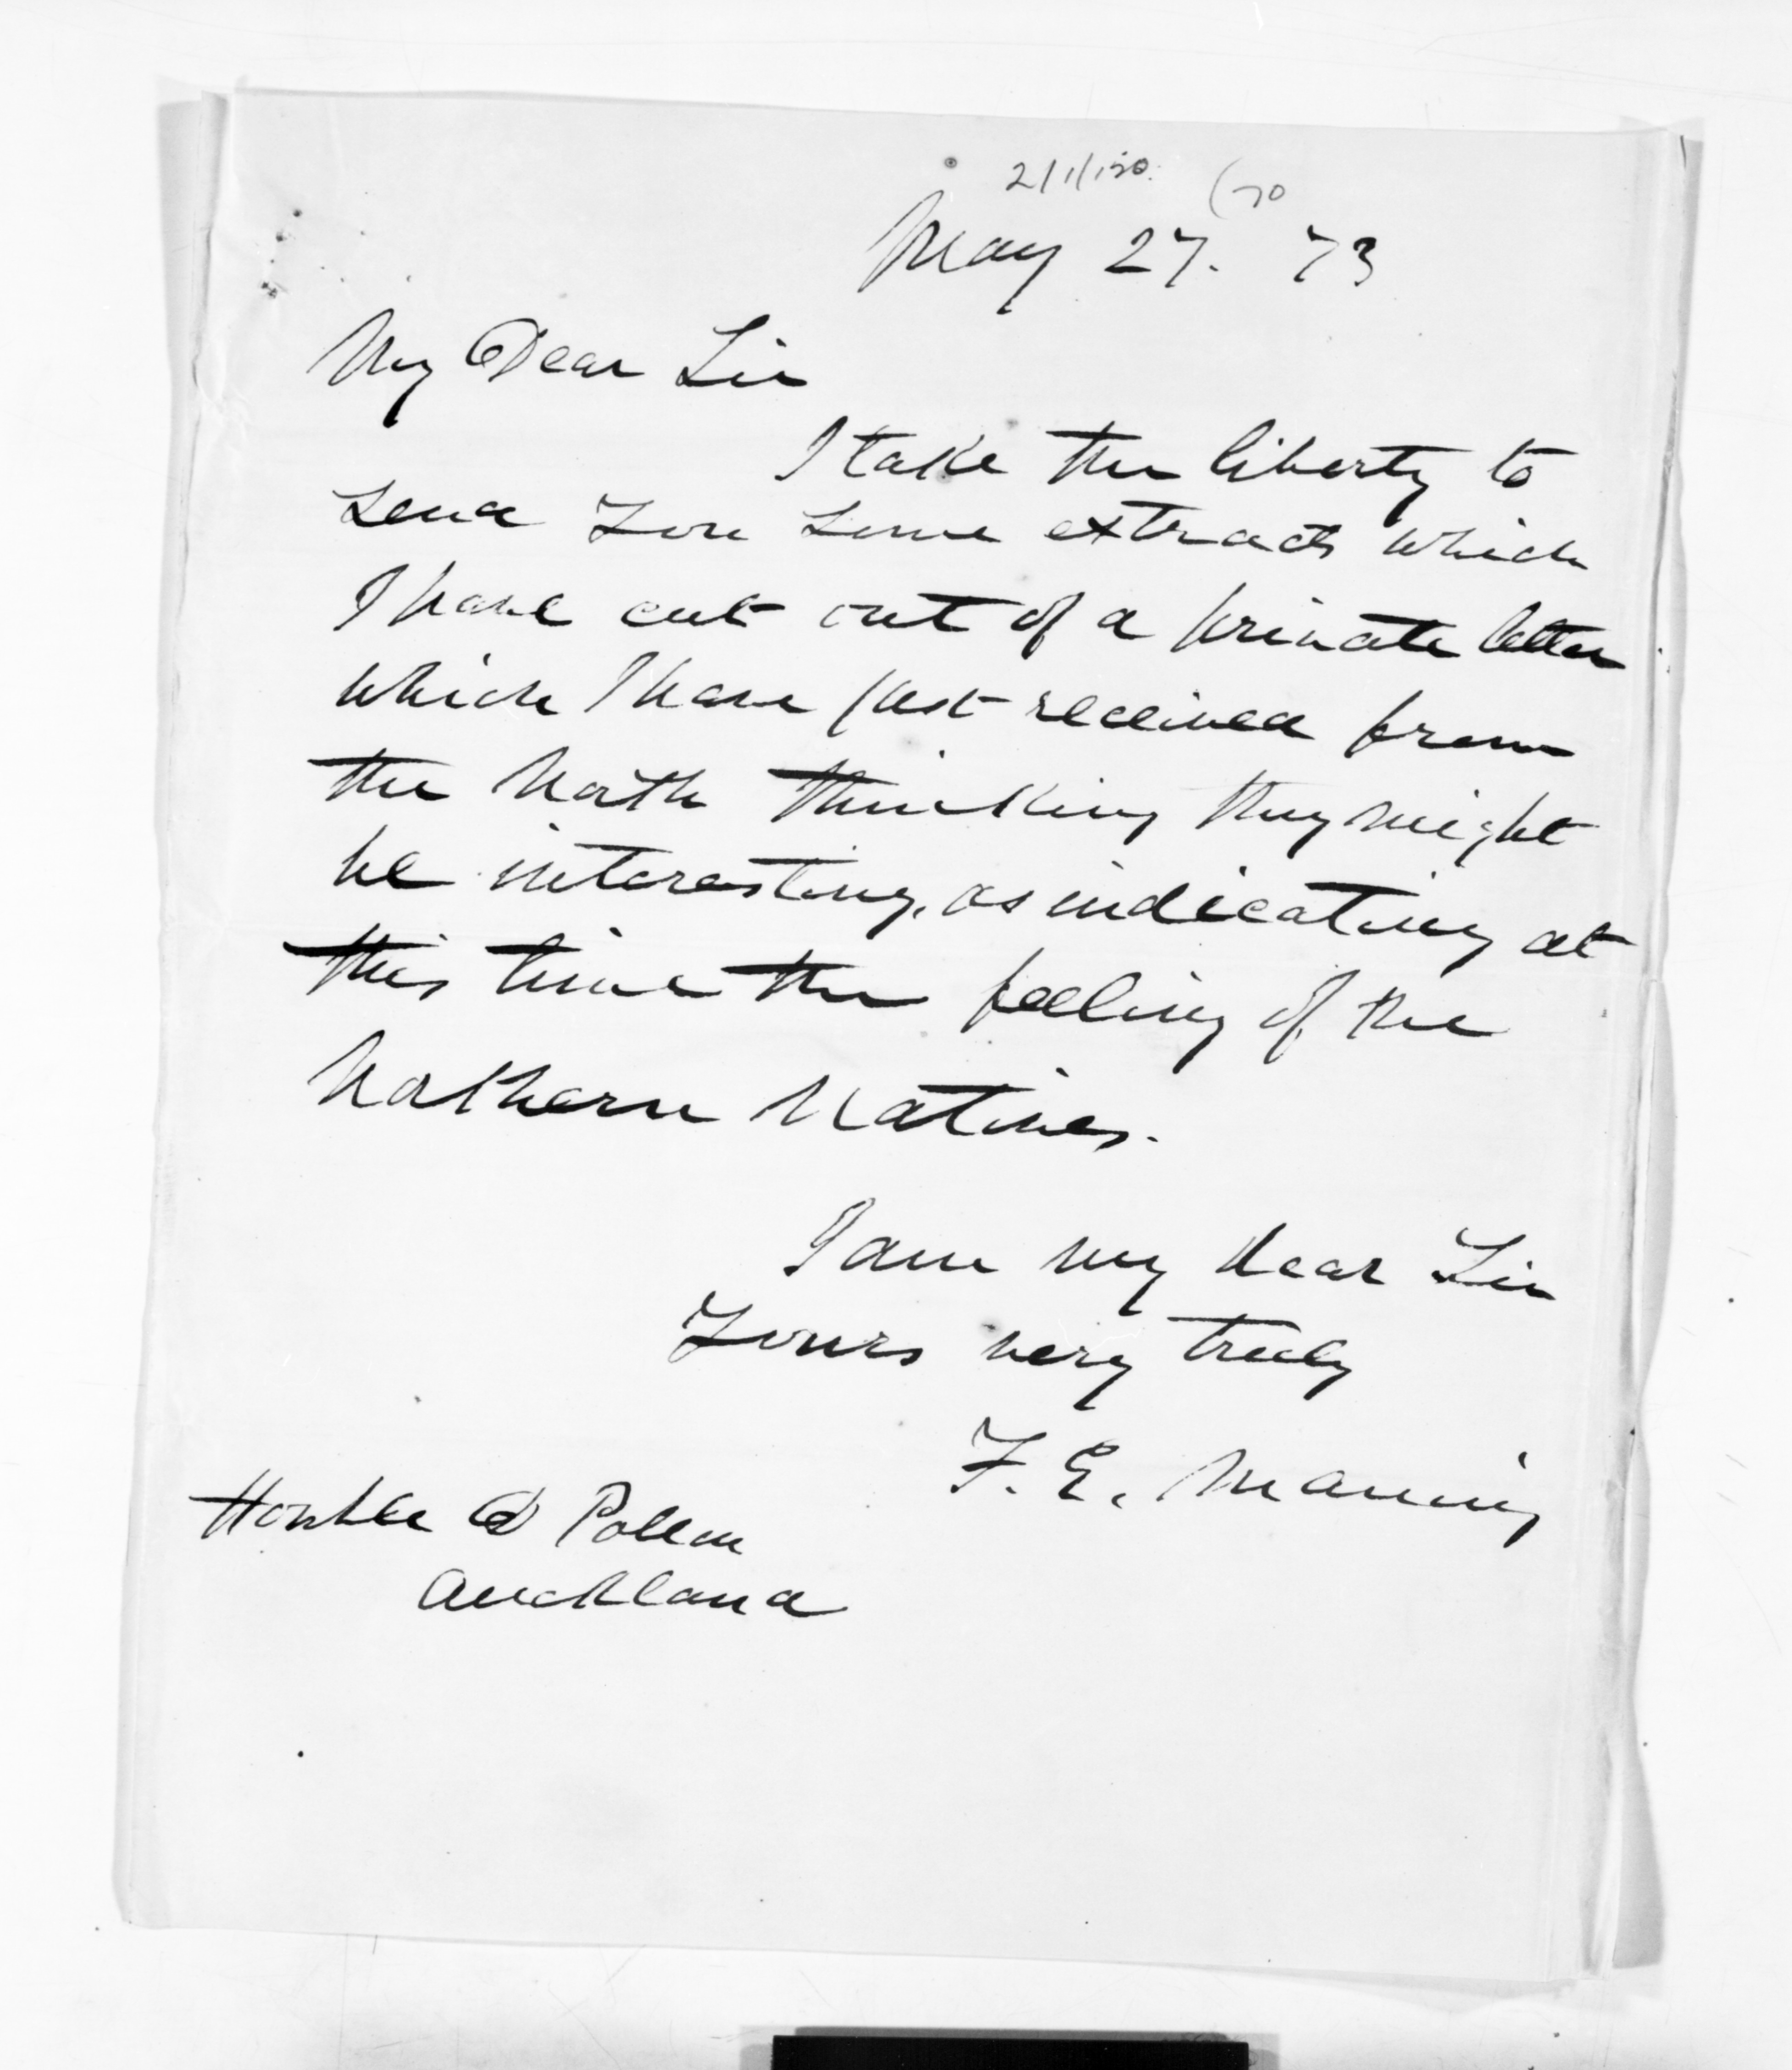 2/1/120. (70
May 27. 73
My Dear Sir
I take the liberty to
send you some extracts which
I have cut out of a private letter
which I have just received from
the North thinking they might
be interesting, as indicating at
this time the feeling of the
Northern Natives.
I am my dear Sir
Yours very truly
F. E. Maning
Honble D Pollen
Auckland